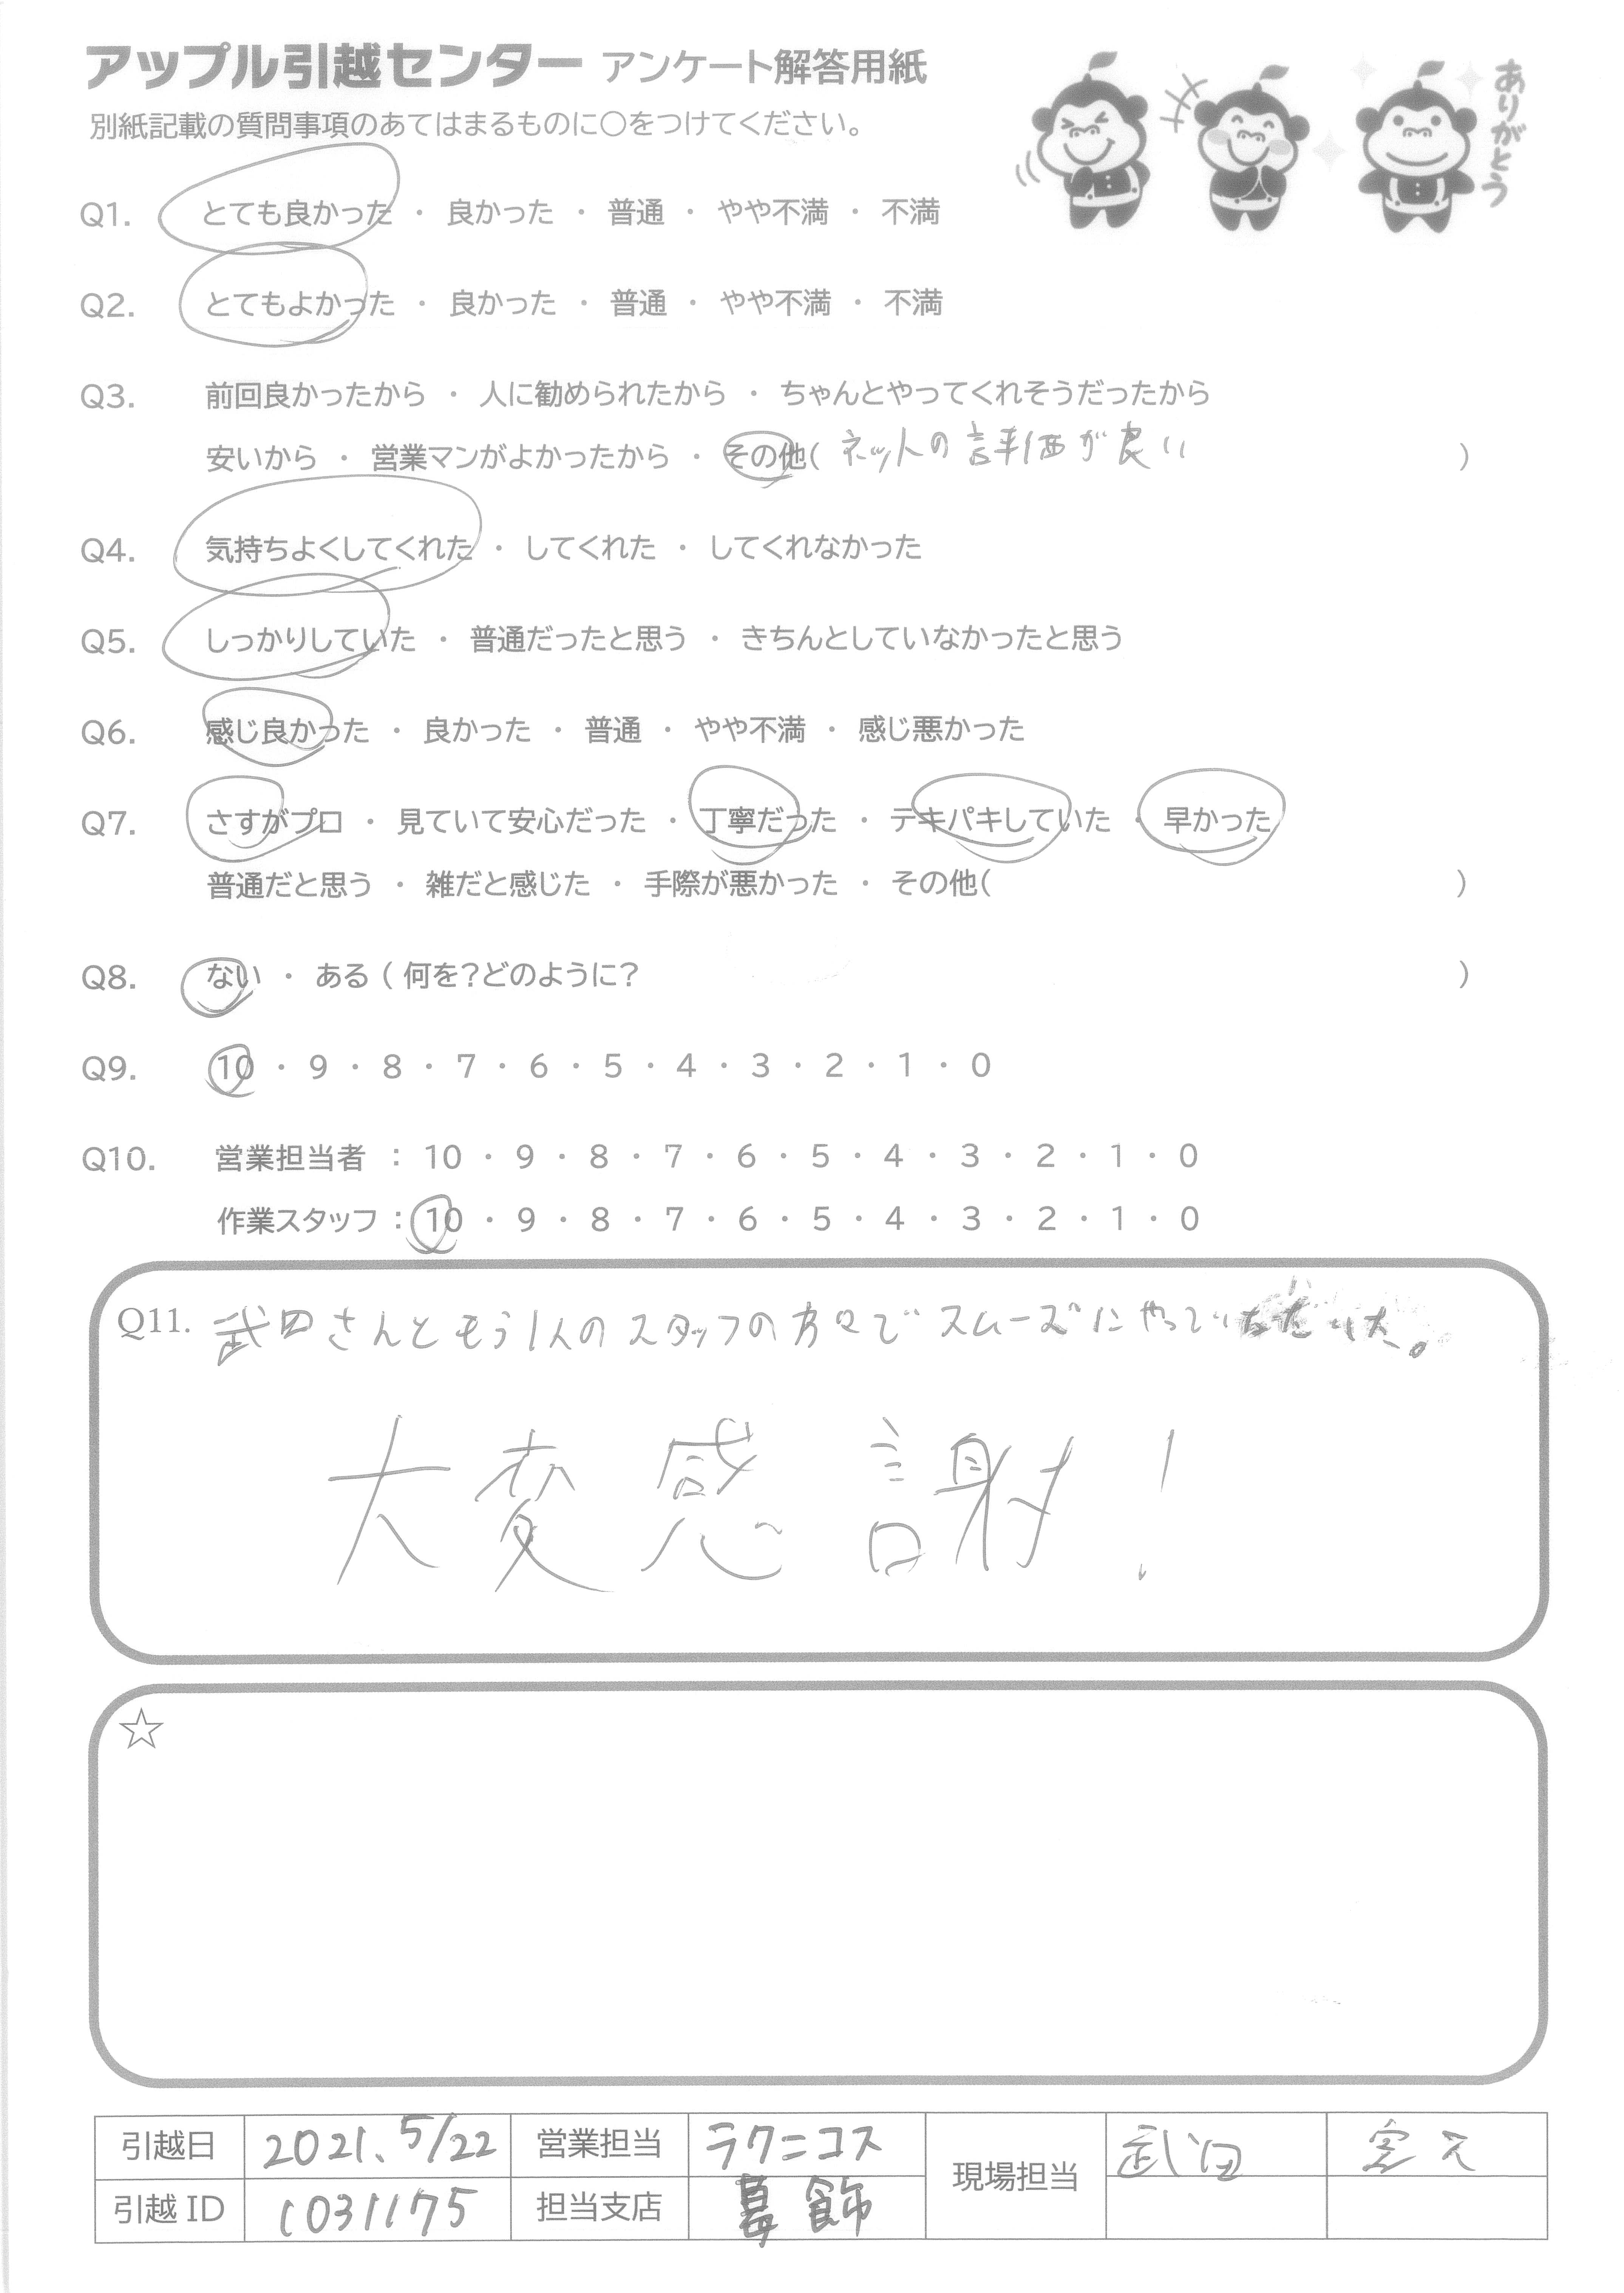 アップル引越センター アンケート解答用紙
ありがとう
別紙記載の質問事項のあてはまるものに○をつけてください。
Q1. とても良かった ・ 良かった ・ 普通 ・ やや不満 ・ 不満
Q2. とてもよかった ・ 良かった ・ 普通 ・ やや不満 ・ 不満
Q3. 前回良かったから ・ 人に勧められたから ・ ちゃんとやってくれそうだったから
安いから ・ 営業マンがよかったから ・ その他( ネットの評価が良い )
Q4. 気持ちよくしてくれた ・ してくれた ・ してくれなかった
Q5. しっかりしていた ・ 普通だったと思う ・ きちんとしていなかったと思う
Q6. 感じ良かった ・ 良かった ・ 普通 ・ やや不満 ・ 感じ悪かった
Q7. さすがプロ ・ 見ていて安心だった ・ 丁寧だった ・ テキパキしていた ・ 早かった
普通だと思う ・ 雑だと感じた ・ 手際が悪かった ・ その他( )
Q8. ない ・ ある ( 何を?どのように? )
Q9. 10 ・ 9 ・ 8 ・ 7 ・ 6 ・ 5 ・ 4 ・ 3 ・ 2 ・ 1 ・ 0
Q10. 営業担当者 : 10 ・ 9 ・ 8 ・ 7 ・ 6 ・ 5 ・ 4 ・ 3 ・ 2 ・ 1 ・ 0
作業スタッフ : 10 ・ 9 ・ 8 ・ 7 ・ 6 ・ 5 ・ 4 ・ 3 ・ 2 ・ 1 ・ 0
Q11. 武田さんともう1人のスタッフの方々でスムーズにやっていただいた。
大変感謝!
☆
引越日 2021.5/22 営業担当 ラクニコス 現場担当 武田
引越ID 1031175 担当支店 葛飾